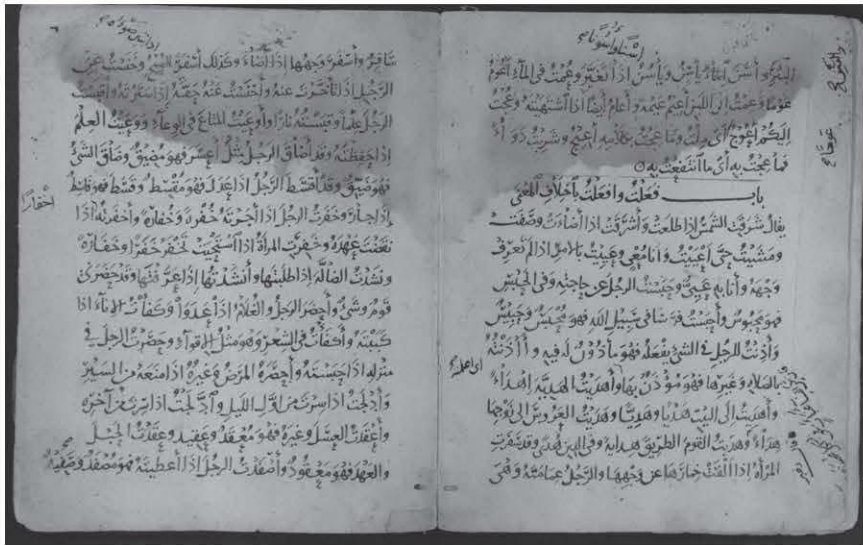 البئر وأسن الماء يأسن ويأسن إذا تغير وعمت في الماء أعوم
عوما وعمت إلى اللبن أعيم عيمة وأعام أيضا إذا اشتهيته وعجت
إليكم أعوج أي ملت وما عجت بكلامه أعيج وشربت دواء
فما عجت به أي ما انتفعت به
باب فعلت وأفعلت باختلاف المعنى
يقال شرقت الشمس إذا طلعت وأشرقت إذا أضاءت وصفت
ومشيت حتى أعييت وأنا معي وعييت بالأمر إذا لم تعرف
وجهه وأنا به عيي وحبست الرجل عن حاجته وفي الحبس
فهو محبوس وأحبست فرسا في سبيل الله فهو محبس وحبيس
وأذنت للرجل في الشيء يفعله فهو مأذون له فيه وآذنته
بالصلاة وغيرها فهو مؤذن بها وأهديت الهدية إهداء
وأهديت إلى البيت هديا وهديا وهديت العروس إلى زوجها
هداء وهديت القوم الطريق هداية وفي الدين هدى وقد سفرت
المرأة إذا ألقت خمارها عن وجهها والرجل عمامته وهي
سافر وأسفر وجهها إذا أضاء وكذلك أسفر الصبح وخنست عن
الرجل إذا تأخرت عنه وأخنست عنه حقه إذا سترته وأقبست
الرجل علما وقبسته نارا وأوعيت المتاع في الوعاء ووعيت العلم
إذا حفظته وقد أضاق الرجل مثل أعسر فهو مضيق وضاق الشيء
فهو ضيق وقد أقسط الرجل إذا عدل فهو مقسط وقسط فهو قاسط
إذا جار وخفرت الرجل إذا أجرته خفرة وخفارة وأخفرته إذا
نقضت عهده وخفرت المرأة إذا استحيت تخفر خفرا وخفارة
ونشدت الضالة إذا طلبتها وأنشدتها إذا عرفتها وقد حضرني
قوم وشيء وأحضر الرجل والغلام إذا عدوا وكفأت الإناء إذا
كببته وأكفأت في الشعر وهو مثل الإقواء وحصرت الرجل في
منزله إذا حبسته وأحصره المرض وغيره إذا منعه من السير
وأدلجت إذا سرت من أول الليل وادلجت إذا سرت من آخره
وأعقدت العسل وغيره فهو معقد وعقيد وعقدت الحبل
والعهد فهو معقود وأصفدت الرجل إذا أعطيته فهو مصفد وصفدته
إخفارا